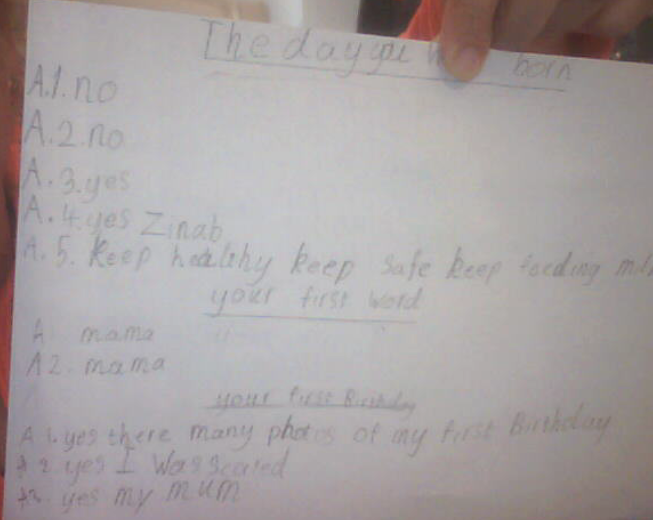 The day you born
A.1. no
A.2. no
A.3. yes
A.4. yes Zinab
A.5. Keep healthy keep safe keep feeding
your first word
A mama
A2. mama
your first Birthday
A 1. yes there many photos of my first Birthday
2. yes I was scared
yes my mum